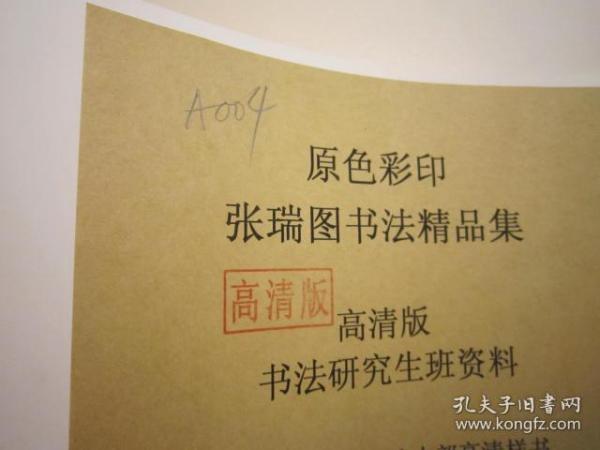 A004
原色彩印
张瑞图书法精品集
高清版
高清版
书法研究生班资料
部高清样书
孔夫子旧书网
www.kongfz.com